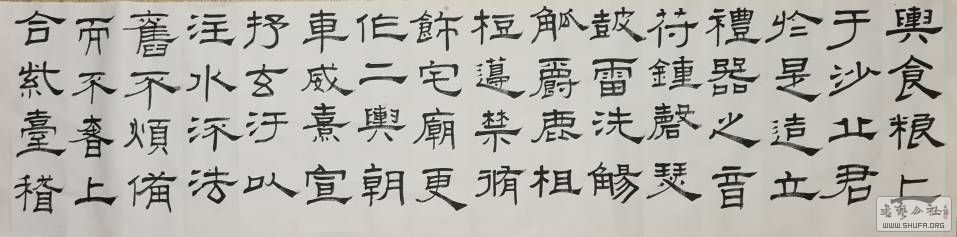 輿食粮亡
于沙丘君
於是造立
禮器之音
符鍾磬瑟
鼓雷洗觴
觚爵鹿柤
梪籩禁脩
飾宅廟更
作二輿朝
車威熹宣
抒玄汙以
注水流法
舊不煩備
而不奢上
合紫臺稽
書藝公社
WWW.SHUFA.ORG